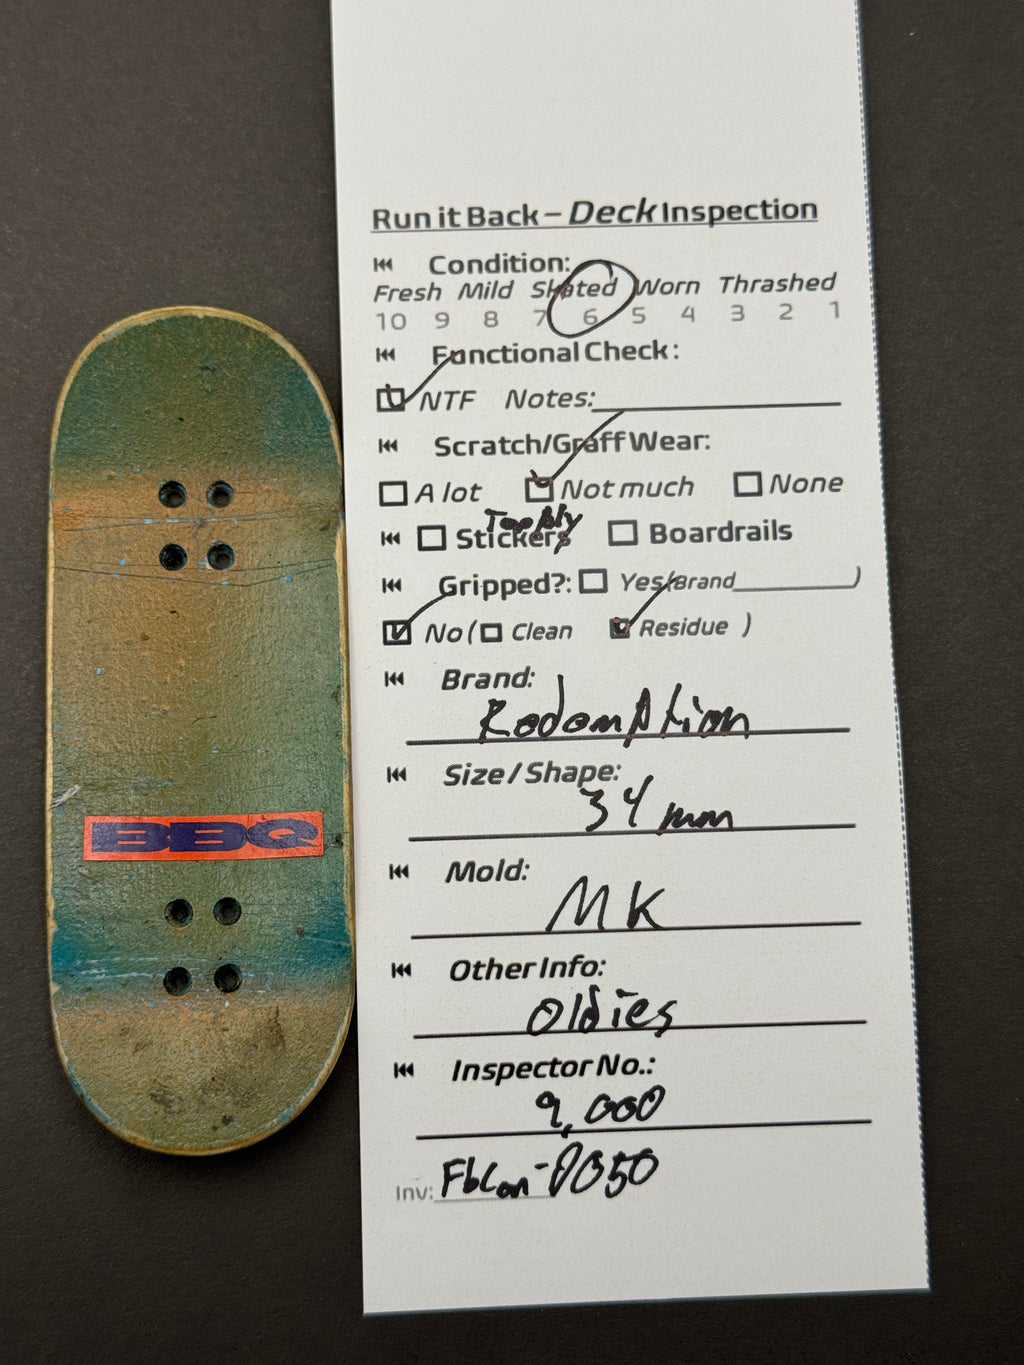 Run it Back – Deck Inspection
Condition:
Fresh Mild Skated Worn Thrashed
10 9 8 7 6 5 4 3 2 1
Functional Check:
NTF Notes:
Scratch/Graff Wear:
A lot Not much None
Stickers Boardrails
Gripped?: Yes/Brand )
No ( Clean Residue )
Brand:
Redemption
Size/Shape:
34mm
BBQ
Mold:
MK
Other Info:
Oldies
Inspector No.:
9,000
Inv: FbCon-